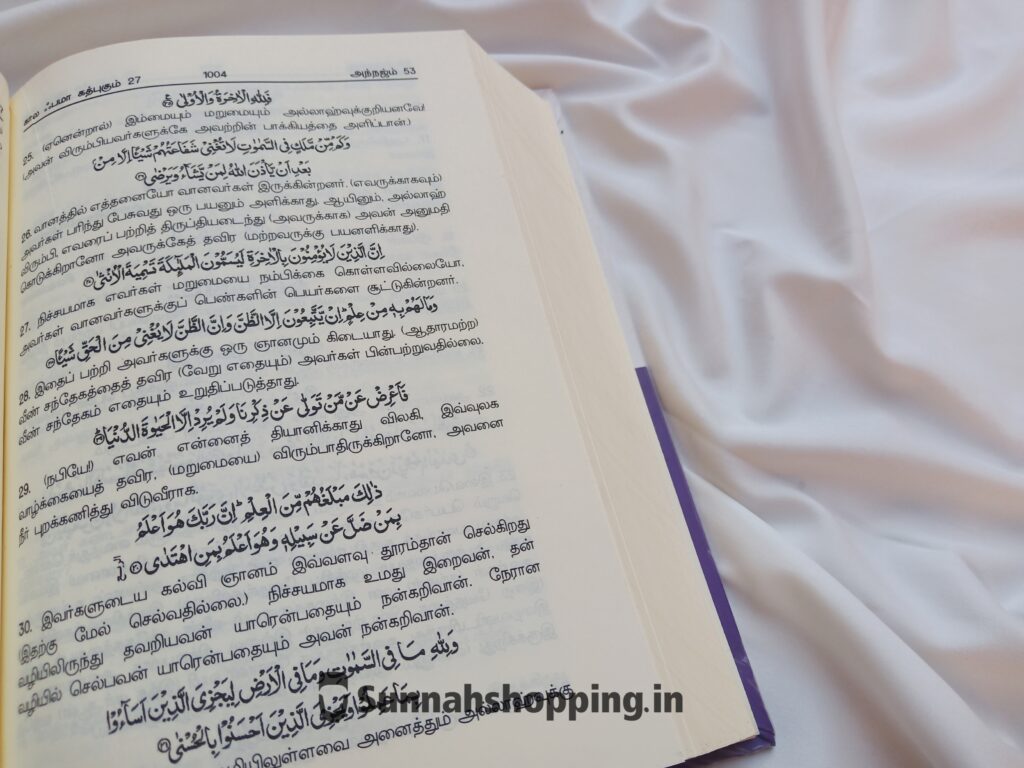 கால ஃபமா கத்புகும் 27 1004 அந்நஜ்ம் 53
فَلِلّٰهِ الْاٰخِرَةُ وَالْاُوْلٰى ۝
25. (ஏனென்றால்) இம்மையும் மறுமையும் அல்லாஹ்வுக்குரியனவே!
(அவன் விரும்பியவர்களுக்கே அவற்றின் பாக்கியத்தை அளிப்பான்.)
وَكَمْ مِّنْ مَّلَكٍ فِى السَّمٰوٰتِ لَا تُغْنِىْ شَفَاعَتُهُمْ شَيْئًا اِلَّا مِنْۢ
بَعْدِ اَنْ يَّاْذَنَ اللّٰهُ لِمَنْ يَّشَآءُ وَيَرْضٰى ۝
26. வானத்தில் எத்தனையோ வானவர்கள் இருக்கின்றனர். (எவருக்காகவும்)
அவர்கள் பரிந்து பேசுவது ஒரு பயனும் அளிக்காது. ஆயினும், அல்லாஹ்
விரும்பி, எவரைப் பற்றித் திருப்தியடைந்து (அவருக்காக) அவன் அனுமதி
கொடுக்கிறானோ அவருக்கேத் தவிர (மற்றவருக்கு பயனளிக்காது).
اِنَّ الَّذِيْنَ لَا يُؤْمِنُوْنَ بِالْاٰخِرَةِ لَيُسَمُّوْنَ الْمَلٰٓئِكَةَ تَسْمِيَةَ الْاُنْثٰى ۝
27. நிச்சயமாக எவர்கள் மறுமையை நம்பிக்கை கொள்ளவில்லையோ,
அவர்கள் வானவர்களுக்குப் பெண்களின் பெயர்களை சூட்டுகின்றனர்.
وَمَا لَهُمْ بِهٖ مِنْ عِلْمٍ ؕ اِنْ يَّتَّبِعُوْنَ اِلَّا الظَّنَّ وَاِنَّ الظَّنَّ لَا يُغْنِىْ مِنَ الْحَقِّ شَيْئًا ۝
28. இதைப் பற்றி அவர்களுக்கு ஒரு ஞானமும் கிடையாது. (ஆதாரமற்ற)
வீண் சந்தேகத்தைத் தவிர (வேறு எதையும்) அவர்கள் பின்பற்றுவதில்லை.
வீண் சந்தேகம் எதையும் உறுதிப்படுத்தாது.
فَاَعْرِضْ عَنْ مَّنْ تَوَلّٰى عَنْ ذِكْرِنَا وَلَمْ يُرِدْ اِلَّا الْحَيٰوةَ الدُّنْيَا ۝
29. (நபியே!) எவன் என்னைத் தியானிக்காது விலகி, இவ்வுலக
வாழ்க்கையைத் தவிர, (மறுமையை) விரும்பாதிருக்கிறானோ, அவனை
நீர் புறக்கணித்து விடுவீராக.
ذٰلِكَ مَبْلَغُهُمْ مِّنَ الْعِلْمِ ؕ اِنَّ رَبَّكَ هُوَ اَعْلَمُ
بِمَنْ ضَلَّ عَنْ سَبِيْلِهٖ وَهُوَ اَعْلَمُ بِمَنِ اهْتَدٰى ۝
30. இவர்களுடைய கல்வி ஞானம் இவ்வளவு தூரம்தான் செல்கிறது
(இதற்கு மேல் செல்வதில்லை.) நிச்சயமாக உமது இறைவன், தன்
வழியிலிருந்து தவறியவன் யாரென்பதையும் நன்கறிவான். நேரான
வழியில் செல்பவன் யாரென்பதையும் அவன் நன்கறிவான்.
وَلِلّٰهِ مَا فِى السَّمٰوٰتِ وَمَا فِى الْاَرْضِ لِيَجْزِىَ الَّذِيْنَ اَسَآءُوْا
بِمَا عَمِلُوْا وَيَجْزِىَ الَّذِيْنَ اَحْسَنُوْا بِالْحُسْنٰى ۝
Sunnahshopping.in
அனைத்தும்